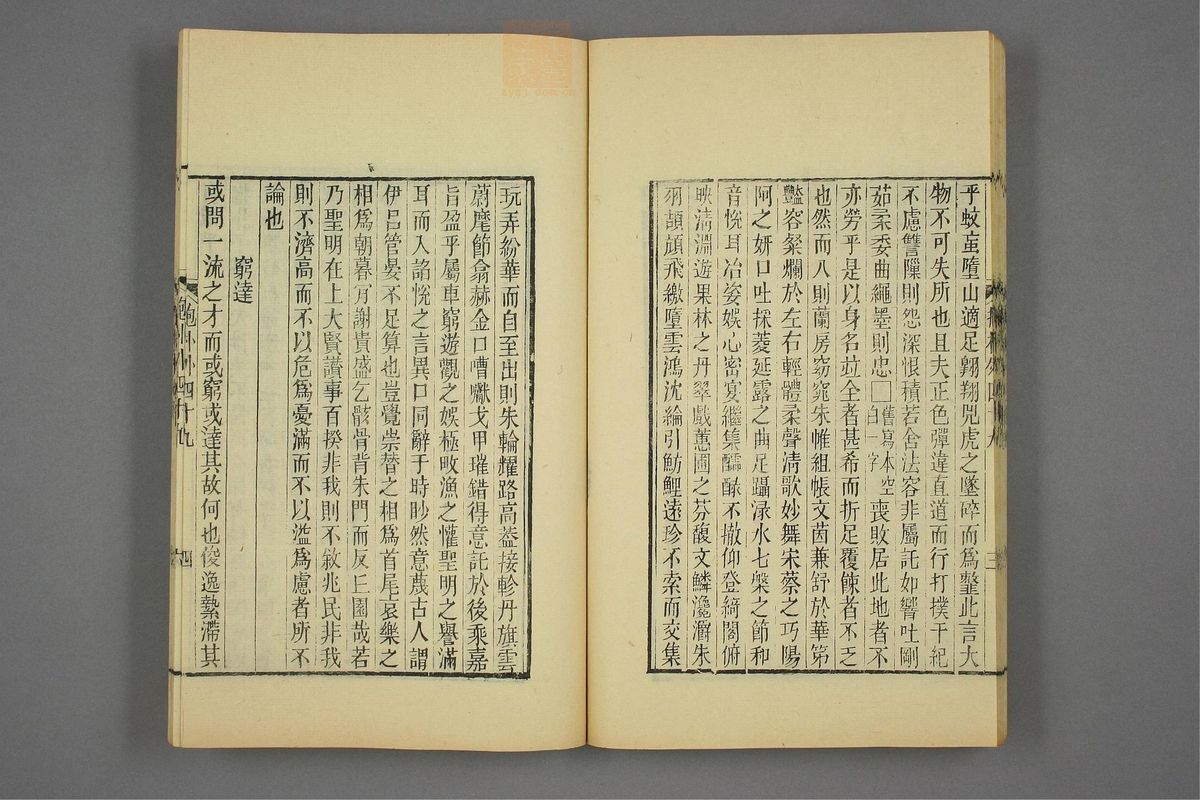 乎蚊䖟墮山適足翺翔兕虎之墜碎而爲韲此言大
物不可失所也且夫正色彈違直道而行打撲干紀
不慮讐隟則怨深恨積若舍法容非屬託如響吐剛
茹柔委曲繩墨則忠□舊寫本空白一字喪敗居此地者不
亦勞乎是以身名竝全者甚希而折足覆餗者不乏
也然而入則蘭房窈窕朱帷組帳文茵兼舒於華第
豔容粲爛於左右輕體柔聲淸歌妙舞宋蔡之巧陽
阿之妍口吐採菱延露之曲足躡淥水七槃之節和
音悅耳冶姿娛心密宴繼集醽醁不撤仰登綺閣俯
映淸淵遊果林之丹翠戲蕙圃之芬馥文鱗瀺灂朱
羽頡頏飛繳墮雲鴻沈綸引魴鯉遠珍不索而交集
玩弄紛華而自至出則朱輪耀路高蓋接軫丹旗雲
蔚麾節翕赫金口嘈㘔戈甲璀錯得意託於後乘嘉
旨盈乎屬車窮遊觀之娛極畋漁之懽聖明之譽滿
耳而入諂悅之言異口同辭于時眇然意蔑古人謂
伊呂管晏不足算也豈覺崇替之相爲首尾哀樂之
相爲朝暮肯謝貴盛乞骸骨背朱門而反丘園哉若
乃聖明在上大賢讚事百揆非我則不敘兆民非我
則不濟高而不以危爲憂滿而不以溢爲慮者所不
論也
窮達
或問一流之才而或窮或達其故何也俊逸縶滯其
抱朴外四十九
四